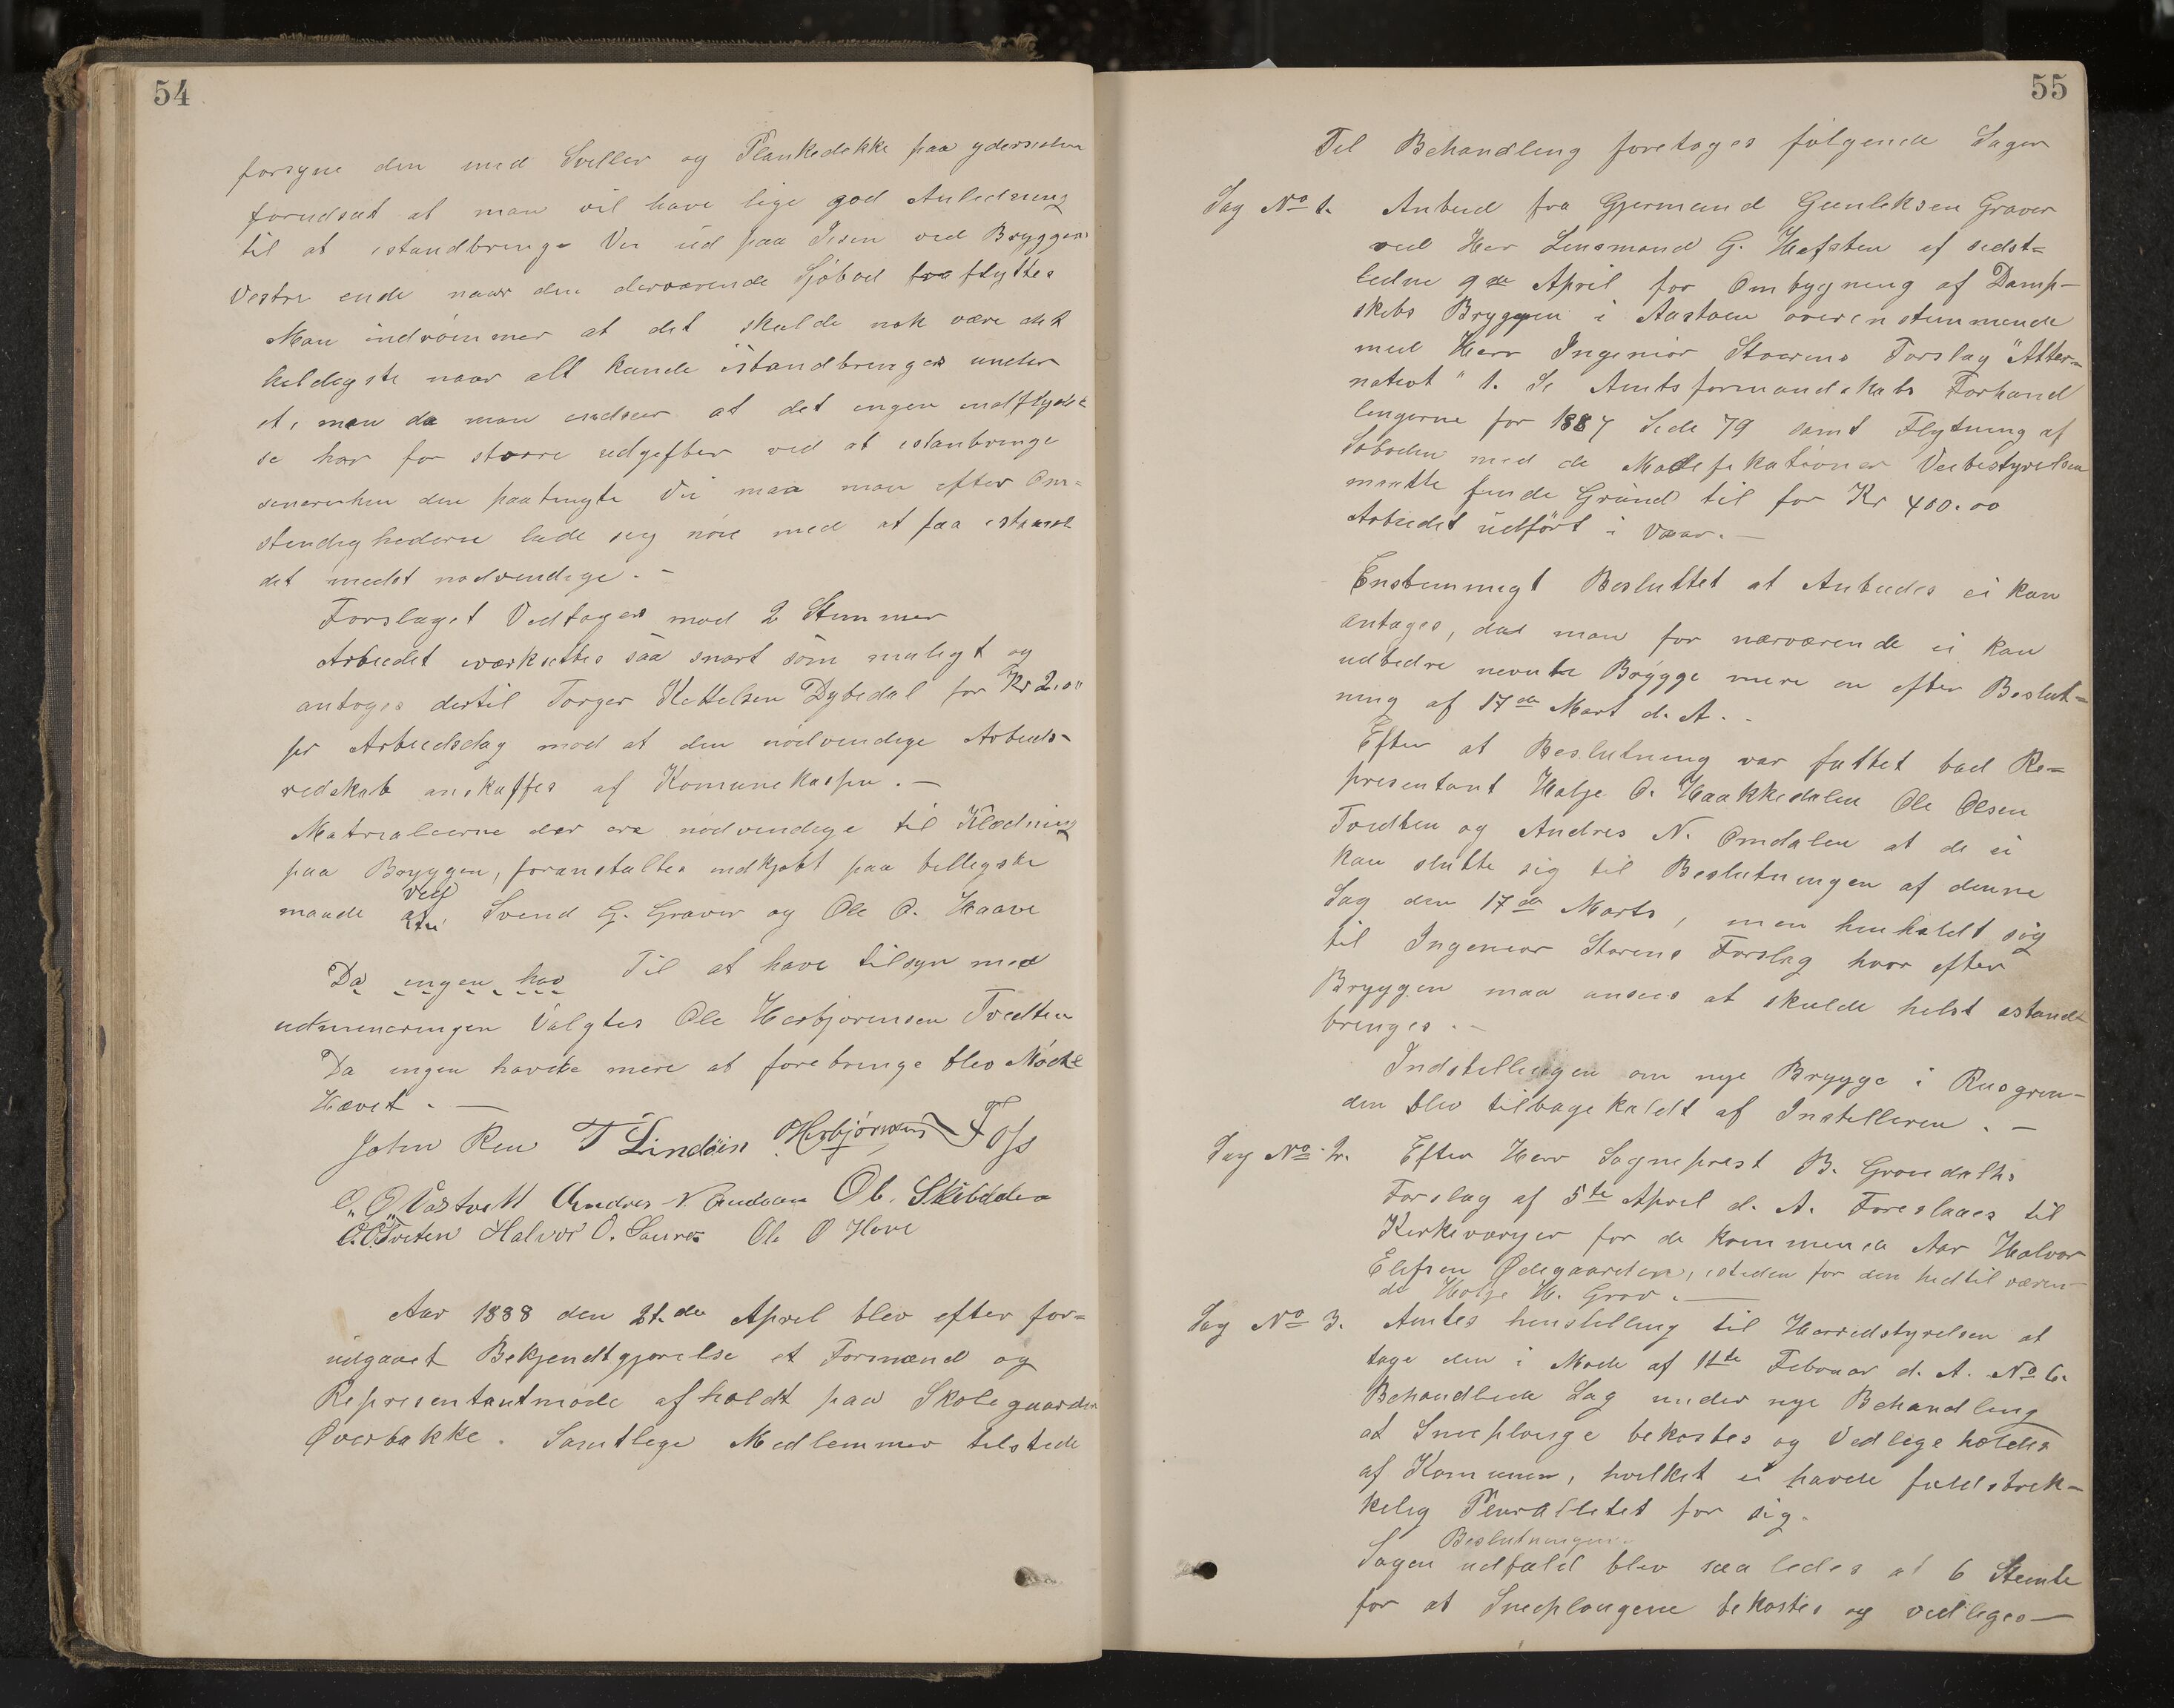 54
forsyne den med Sviller og Plankedekke paa ydersiden
forudsat at man vil have lige god Anledning
til at istandbringe Vei ud paa Isen ved Bryggens
Vestre ende naar den derværende Sjöbod fraflyttes
Man indrömmer at det skulde nok være det
heldigste naar alt kunde istandbringes under
et, men da man indseer at det ingen indflydel-
se har for større udgifter ved at istanbringe
senerehen den paatengte Vei maa man efter Om-
stendighederne lade seg nöie med at faa istand
det medst nodvendige. –
Forslaget Vedtages mod 2 Stemmer
Arbeidet værksettes saa snart som muligt og
antoges dertil Torger Kettelsen Dybedal for Kr 2,0"
pr Arbeidsdag mod at den nödvendige Arbeids-
redskab anskaffes af Komunekassen. –
Matrialeerne der ere nodvendige til Klædning
paa Bryggen, foranstaltes indkjöbt paa billigste
ved
maade Svend G. Graver og Ole O. Haave
Da ingen hav Til at have tilsyn med
udmineringen Valgtes Ole Herbjörensen Tvedten
Da ingen havde mere at forebringe blev Möde
Hævet. –
John Ren T Lindöin O Herbjörnsen Foss
O. G. Vastveit Andres N Omdalen Ol. Skibdalen
O. O. Tveten Halvor O. Ole O Hove
Aar 1888 den 21.de April blev efter for-
udgaaet Bekjendtgjørelse et Formænd og
Representantmöde afholdt paa Skolegaarden
Øverbakke. Samtlige Medlemmer tilstede
55
Til Behandling foretages fölgende Sager
Sag No 1. Anbud fra Gjermund Gunleksen Graver
ved Her Lensmand G. Hefsten af sedst-
ledne 9de April for Ombygning af Damp-
skibs Bryggen i Aastoen overenstemmende
med Herr Ingeniör Stoerens Forslag "Alter-
nativt" 1. Se Amtsformandskabs Forhand
lingerne for 1887 Side 79 samt Flytning af
Söboden med de Modefikationer Veibestyrelsen
maatte finde Grund til for Kr 400.00
Arbeidet udfört i Vaar. –
Enstemmigt Besluttet at Anbudes ei kan
antages, da man for nærværende ei kan
udbedre nevnte Brygge mere en efter Beslut-
ning af 17de Mart d. A. -
Efter at Beslutning var fattet bad Re-
presentant Hatje O. Haakkedalen Ole Olsen
Tvedten og Andres N. Omdalen at de ei
kan slutte sig til Beslutningen af denne
Sag den 17de Marts, men henholdt sig
til Ingeniør Storens Forslag hvor efter
Bryggen maa ansees at skulde helst istand-
bringes. –
Indstellingen om nye Brygge i Rusgren-
den blev tilbagekaldt af Instelleren. –
Sag No 2. Efter Herr Sogneprest B. Grondalhs
Forslag af 5te April d. A. Foreslaaes til
Kirkeverger for de kommende Aar Halvor
Elefsen Ødegaarden, isteden for den hedtil væren-
de Hatje H. Grav. –
Sag No 3. Amtes henstelling til Herredstyrelsen at
tage den i Mode af 11te Februar d. A. No 6.
Behandlede Sag under nye Behandling
at Sneeplouge bekostes og Vedlige holdes
af Kommunen, hvilket ei havde fuldstrek-
kelig Pluralletet for sig.
Beslutningen
Sagen udfald blev saaledes at 6 Stemte
for at Sneeplougene bekostes og vedliges-